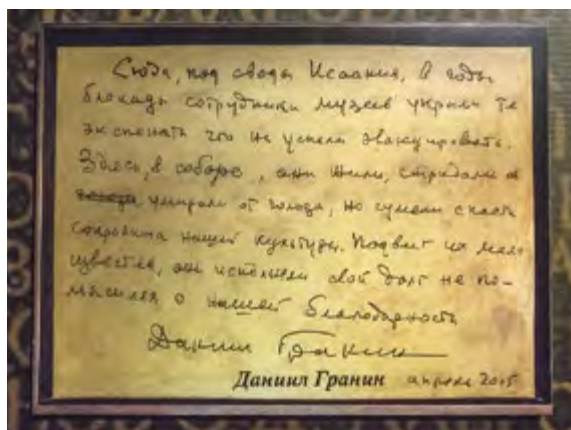 Сюда, под своды Исаакия, в годы
блокады сотрудники музеев укрыли те
экспонаты что не успели эвакуировать.
Здесь, в соборе, они жили, страдали и
умирали от голода, но сумели спасти
сокровища нашей культуры. Подвиг их мало
известен, они исполнили свой долг не по-
мышляя о нашей благодарности
Даниил Гранин
Даниил Гранин апрель 2015